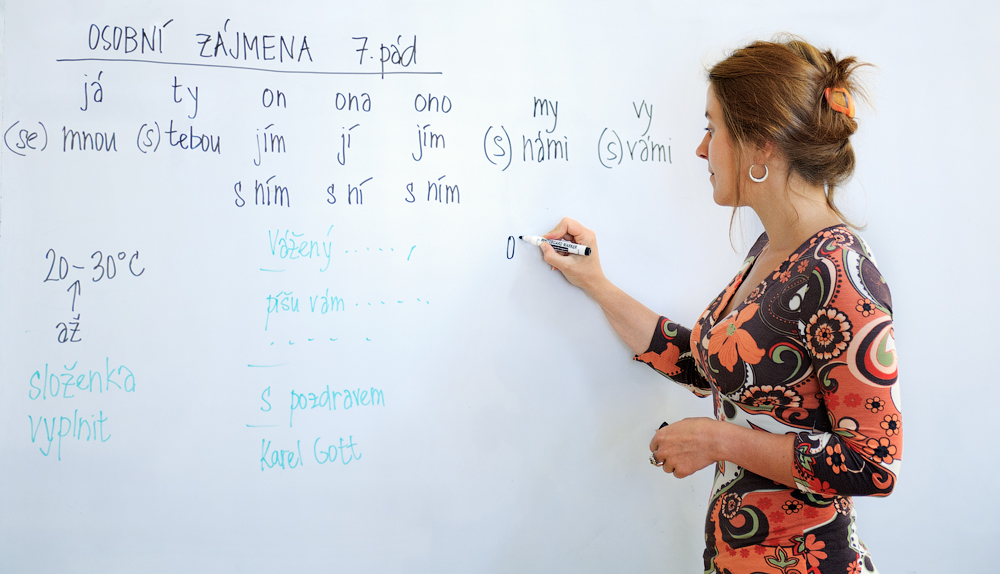 OSOBNÍ ZÁJMENA 7. pád
já ty on ona ono my vy
(se) mnou (s) tebou jím jí jím (s) námi (s) vámi
s ním s ní s ním
Vážený ....., 
píšu vám ......
. . . . .
s pozdravem
Karel Gott
20–30°C
↑
až
složenka
vyplnit
0